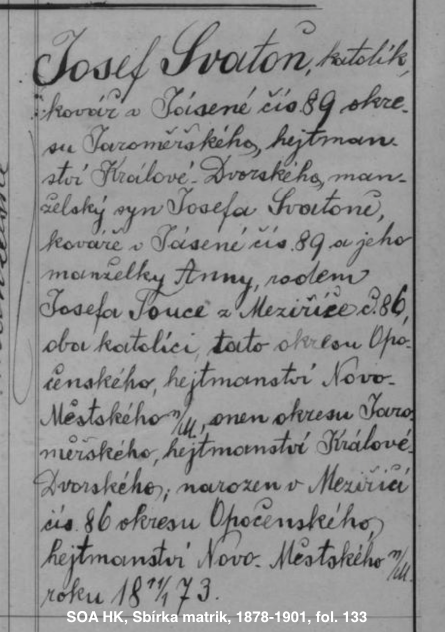 Josef Svatoň, katolík,
kovář v Jásené čís. 89 okre-
su Jaroměřského, hejtman-
ství Králové-Dvorského, man-
želský syn Josefa Svatoně,
kováře v Jásené čís. 89 a jeho
manželky Anny, rodem
Josefa Touce z Meziříče č. 86,
oba katolíci, tato okresu Opo-
čenského, hejtmanství Novo-
Městského n/M., onen okresu Jaro-
měřského, hejtmanství Králové-
Dvorského; narozen v Meziříčí
čís. 86 okresu Opočenského,
hejtmanství Novo-Městského n/M.
roku 18 11/1 73.
SOA HK, Sbírka matrik, 1878-1901, fol. 133